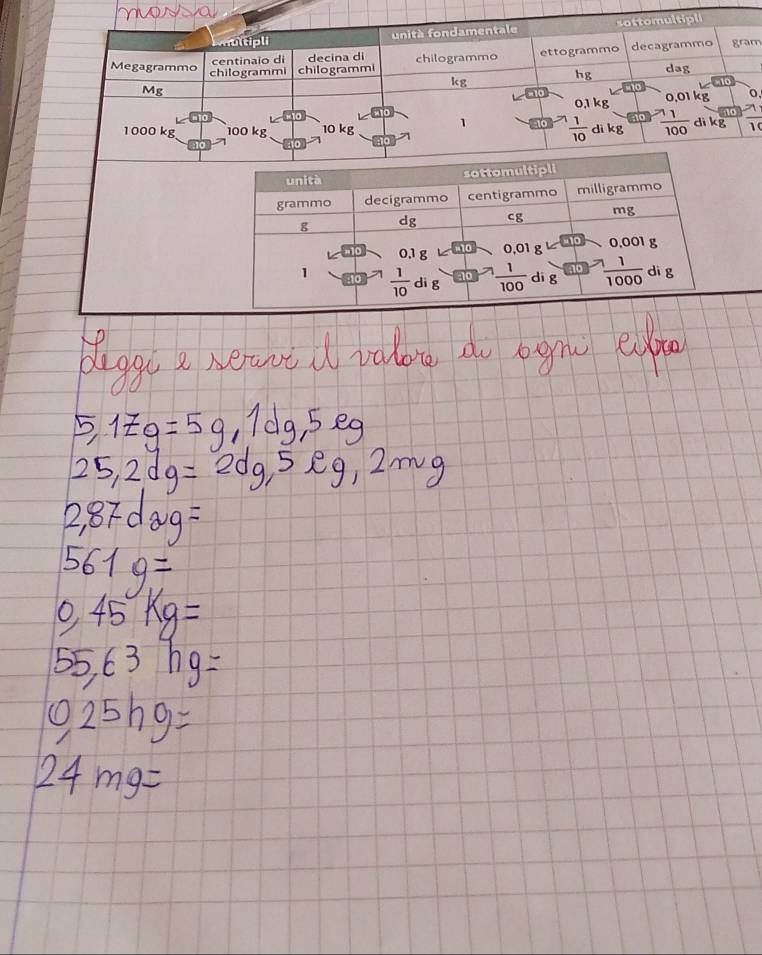 massa
multipli unità fondamentale sottomultipli
Megagrammo centinaio di chilogrammi decina di chilogrammi chilogrammo ettogrammo decagrammo gram
Mg kg hg dag
1000 kg 100 kg 10 kg 1 0,1 kg 0,01 kg 0,
×10 ×10 ×10 ×10 ×10 ×10
:10 :10 :10 :10 :10 :10
1/10 di kg 1/100 di kg
unità sottomultipli
grammo decigrammo centigrammo milligrammo
g dg cg mg
×10 0,1 g ×10 0,01 g ×10 0,001 g
1 :10 1/10 di g :10 1/100 di g :10 1/1000 di g
Leggi e scrivi il valore di ogni cifra
5,17g=5g,1dg,5cg
25,2dg=2dg,5cg,2mg
2,87dag=
561g=
0,45 Kg=
55,63 hg=
0,25hg=
24 mg=